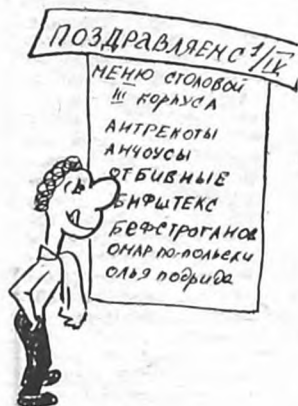 ПОЗДРАВЛЯЕМ С 1/IV
МЕНЮ СТОЛОВОЙ
III КОРПУСА
АНТРЕКОТЫ
АНЧОУСЫ
ОТБИВНЫЕ
БИФШТЕКС
БЕФСТРОГАНОВ
ОМАР ПО-ПОЛЬСКИ
ОЛЬЯ ПОДРИДА